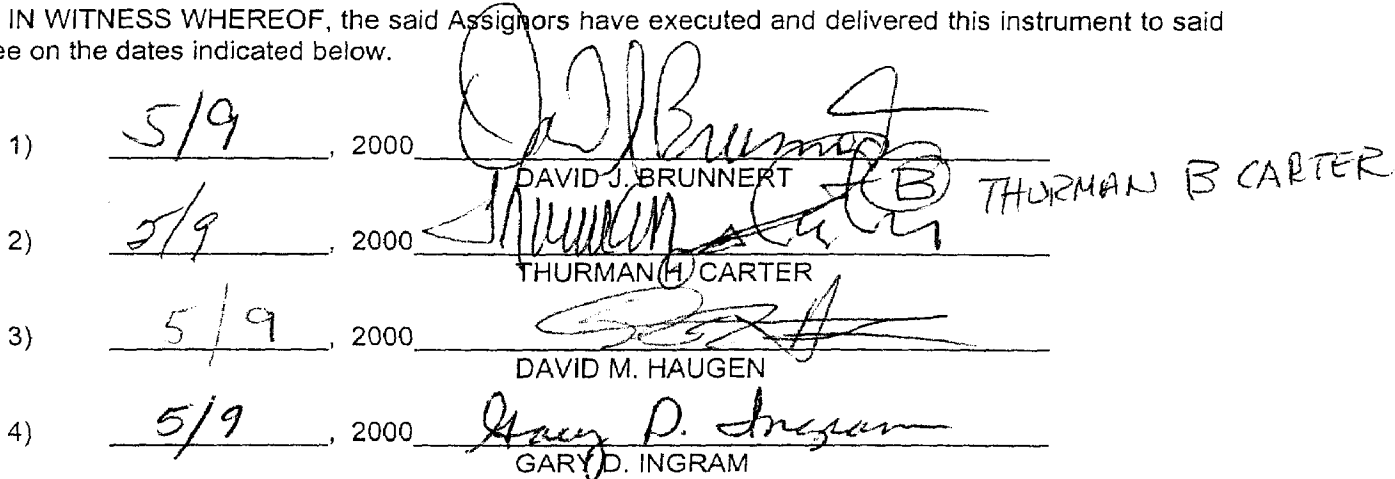 IN WITNESS WHEREOF, the said Assignors have executed and delivered this instrument to said
ee on the dates indicated below.
1) 5/9, 2000 David J Brunnert
DAVID J. BRUNNERT B THURMAN B CARTER
2) 5/9, 2000 Thurman Carter
THURMAN H. CARTER
3) 5/9, 2000
DAVID M. HAUGEN
4) 5/9, 2000 Gary D. Ingram
GARY D. INGRAM